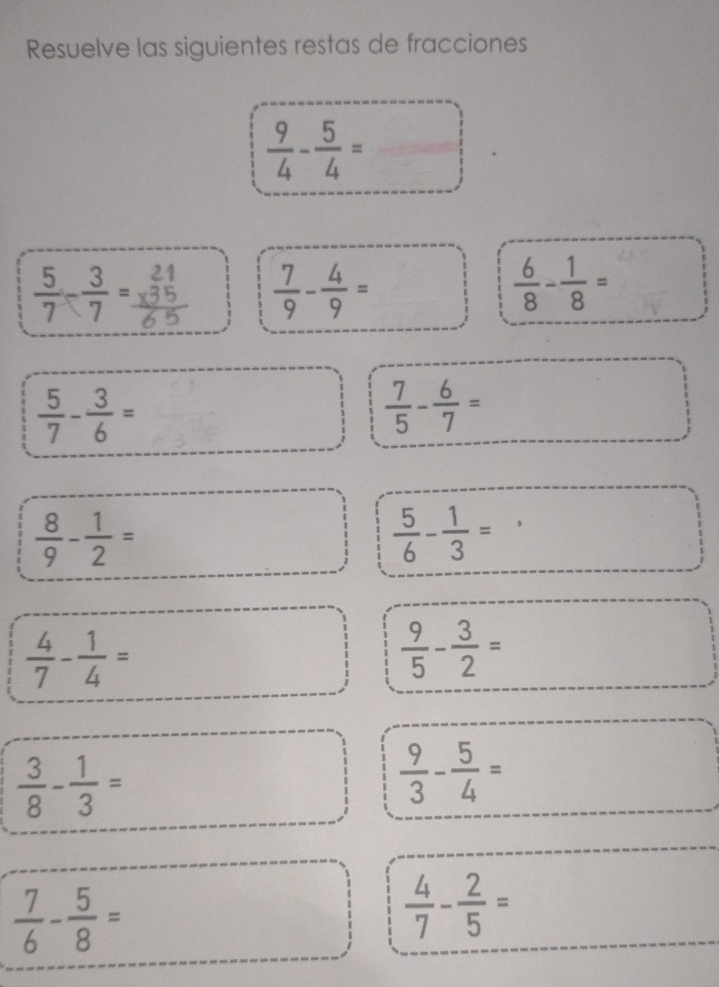 Resuelve las siguientes restas de fracciones
9/4 - 5/4 =
5/7 - 3/7 = 21 x35 65
7/9 - 4/9 =
6/8 - 1/8 =
5/7 - 3/6 =
7/5 - 6/7 =
8/9 - 1/2 =
5/6 - 1/3 =
4/7 - 1/4 =
9/5 - 3/2 =
3/8 - 1/3 =
9/3 - 5/4 =
7/6 - 5/8 =
4/7 - 2/5 =